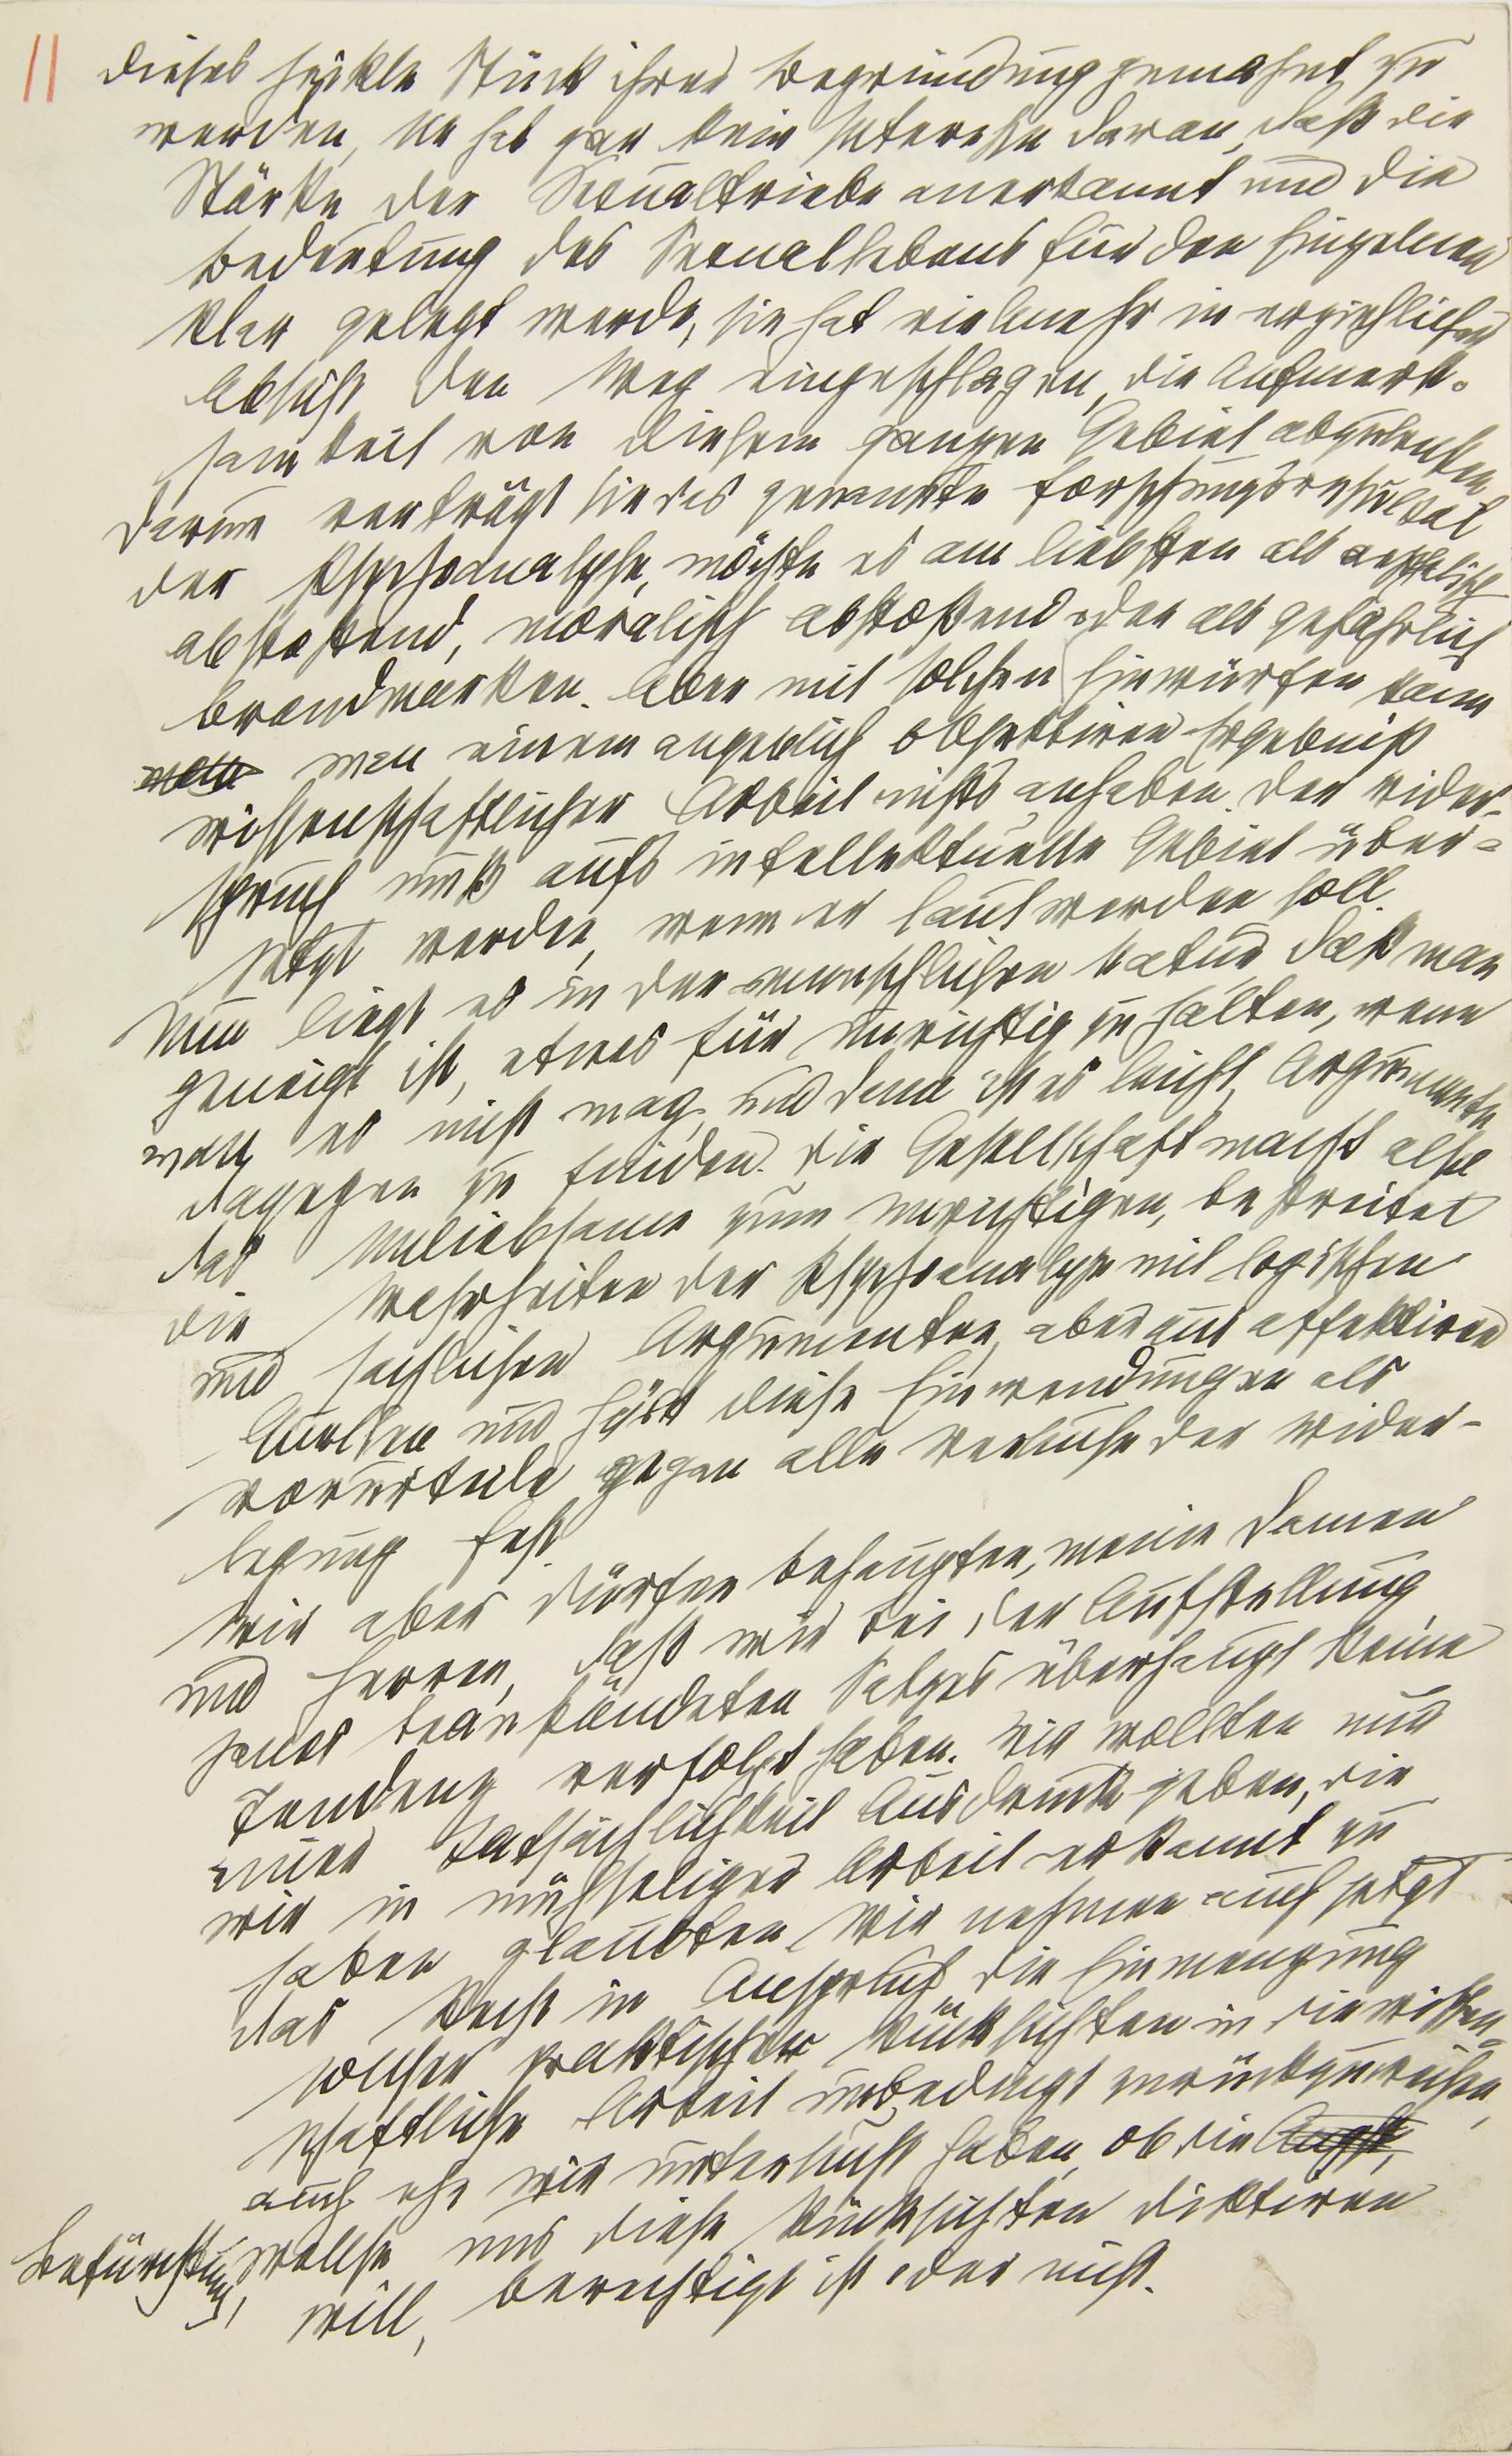 11
dieses heikle Stück ihrer Begründung gemahnt zu
werden, sie hat gar kein Interesse daran, daß die
Stärke der Sexualtriebe anerkannt und die
Bedeutung des Sexuallebens für den Einzelnen
klar gelegt werde, sie hat vielmehr in erziehlicher
Absicht den Weg eingeschlagen, die Aufmerk-
samkeit von diesem ganzen Gebiet abzulenken
Darum verträgt sie das genannte Forschungsresultat
der Psychoanalyse, möchte es am liebsten als aesthetisch
abstoßend, moralisch abstoßend oder als gefährlich
brandmarken. Aber mit solchen Einwürfen kann
man einem angeblich objektiven Ergebniß
wissenschaftlicher Arbeit nichts anhaben. Der Wider-
spruch muß aufs intellektuelle Gebiet über-
setzt werden, wenn er laut werden soll.
Nun liegt es in der menschlichen Natur, daß man
geneigt ist, etwas für unrichtig zu halten, wenn
man es nicht mag, und dann ist es leicht, Argumente
dagegen zu finden. Die Gesellschaft macht also
das Unliebsame zum Unrichtigen, bestreitet
die Wahrheiten der Psychoanalyse mit logischen
und sachlichen Argumenten, aber aus affektiven
Quellen und hält diese Einwendungen als
Vorurteile gegen alle Versuche der Wider-
legung fest.
Wir aber dürfen behaupten, meine Damen
und Herren, daß wir bei der Aufstellung
jenes beanständeten Satzes überhaupt keine
Tendenz verfolgt haben. Wir wollten nur
einer Tatsächlichkeit Ausdruck geben, die
wir in mühseliger Arbeit erkannt zu
haben glaubten. Wir nehmen auch jetzt
das Recht in Anspruch, die Einmengung
solcher praktischer Rücksichten in die wissen-
schaftliche Arbeit unbedingt zurückzuweisen,
auch ehe wir untersucht haben, ob die Angst,
Befürchtung, welche uns diese Rücksichten diktiren
will, berechtigt ist oder nicht.